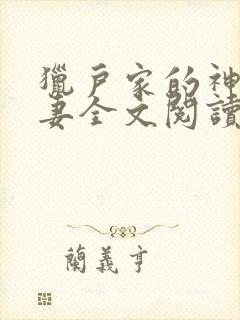 獵戶家的神
妻全文閱讀
蘭義亨